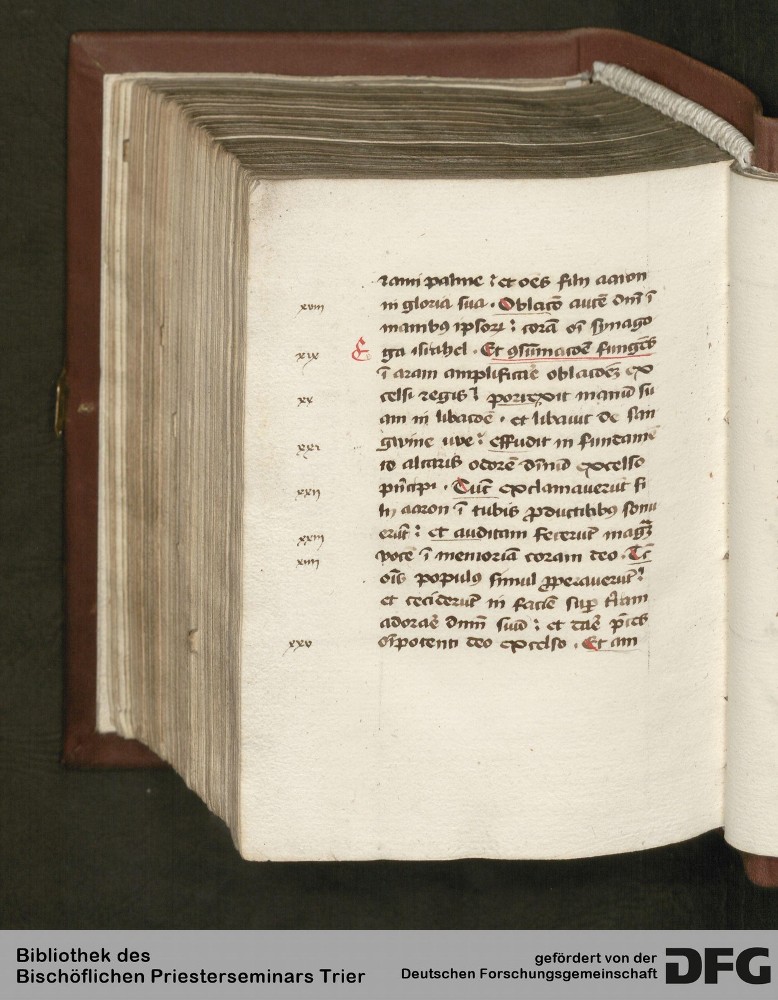 rami palme : et oēs filii aaron
xviii in gloria sua . Oblacō autē dnī ī
manibꝯ ipsoꝝ : corā oī synago
xix E ga israhel . Et ꝯsūmacōē fungēs
ī aram amplificare oblacōēꝫ ex
xx celsi regis porrexit manū su
am in libacōe . et libauit de san
xxi gwine uve : effudit in fundamē
to altaris odorē diuinū excelso
xxii prīcipi . Tūc exclamaverūt fi
lii aaron ī tubis ꝓductilibꝯ sonu
xxiii erūt : et auditam fecerūt magꝫ
xiiii vocē ī memoriā coram deo . Tē
oīs populꝯ simul ꝓperaverūt :
et ceciderūt in faciē sup trām
adorare dnm suū : et dare p̄ces
xxv oīpotenti deo excelso . Et am
Bibliothek des
Bischöflichen Priesterseminars Trier
gefördert von der
Deutschen Forschungsgemeinschaft
DFG